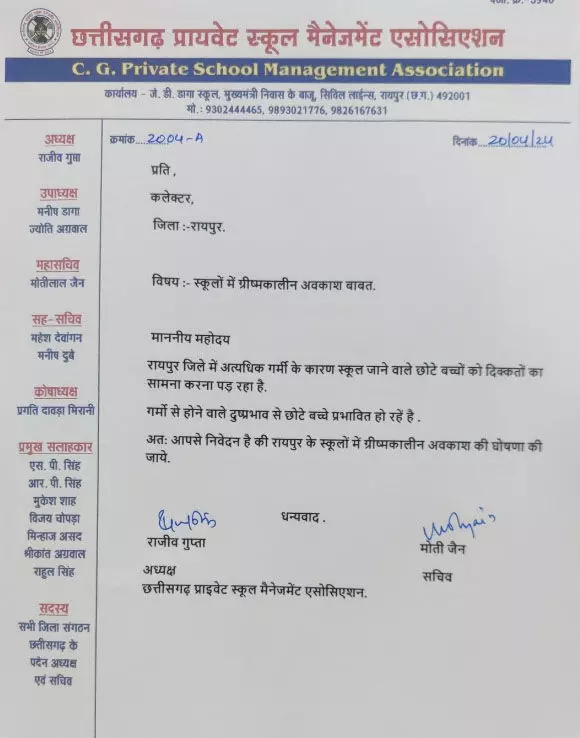 पंजी. क्र.-3940
छत्तीसगढ़ प्रायवेट स्कूल मैनेजमेंट एसोसिएशन
C. G. Private School Management Association
कार्यालय - जे. डी. डागा स्कूल, मुख्यमंत्री निवास के बाजू, सिविल लाईन्स, रायपुर (छ.ग.) 492001
मो.: 9302444465, 9893021776, 9826167631
क्रमांक...2004-A
दिनांक...20/04/24
अध्यक्ष
राजीव गुप्ता
उपाध्यक्ष
मनीष डागा
ज्योति अग्रवाल
महासचिव
मोतीलाल जैन
सह-सचिव
महेश देवांगन
मनीष दुबे
कोषाध्यक्ष
प्रगति दावड़ा मिरानी
प्रमुख सलाहकार
एस. पी. सिंह
आर. पी. सिंह
मुकेश शाह
विजय चोपड़ा
मिन्हाज असद
श्रीकांत अग्रवाल
राहुल सिंह
सदस्य
सभी जिला संगठन
छत्तीसगढ़ के
पदेन अध्यक्ष
एवं सचिव
प्रति,
कलेक्टर,
जिला :-रायपुर.
विषय :- स्कूलों में ग्रीष्मकालीन अवकाश बाबत.
माननीय महोदय
रायपुर जिले में अत्यधिक गर्मी के कारण स्कूल जाने वाले छोटे बच्चों को दिक्कतों का
सामना करना पड़ रहा है.
गर्मो से होने वाले दुष्प्रभाव से छोटे बच्चे प्रभावित हो रहें है .
अतः आपसे निवेदन है की रायपुर के स्कूलों में ग्रीष्मकालीन अवकाश की घोषणा की
जाये.
धन्यवाद .
राजीव गुप्ता
मोती जैन
अध्यक्ष
सचिव
छत्तीसगढ़ प्राइवेट स्कूल मैनेजमेंट एसोसिएशन.